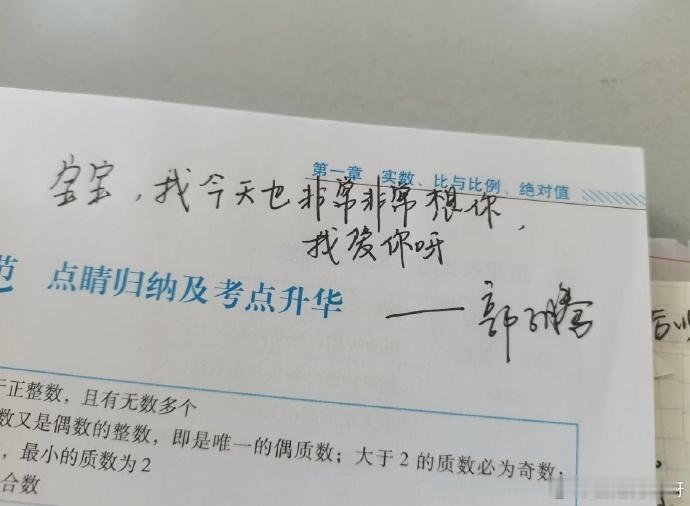 第一章 实数、比与比例、绝对值
宝宝，我今天也非常非常想你，
我爱你呀
点睛归纳及考点升华
——郭
正整数，且有无数多个
数又是偶数的整数，即是唯一的偶质数；大于2的质数必为奇数，
，最小的质数为2
合数